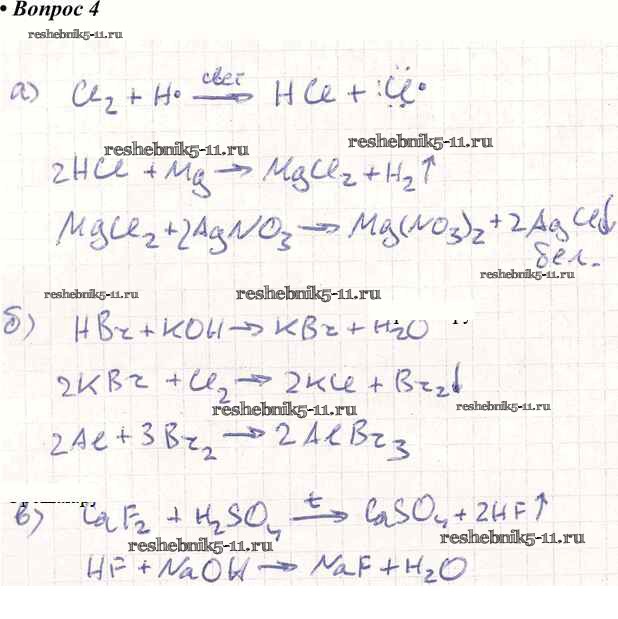 • Вопрос 4
reshebnik5-11.ru
а) Cl₂ + H• —свет→ HCl + :C̈l•
reshebnik5-11.ru reshebnik5-11.ru
2HCl + Mg → MgCl₂ + H₂↑
MgCl₂ + 2AgNO₃ → Mg(NO₃)₂ + 2AgCl↓
бел.
reshebnik5-11.ru
reshebnik5-11.ru reshebnik5-11.ru
б) HBr + KOH → KBr + H₂O
2KBr + Cl₂ → 2KCl + Br₂↓
reshebnik5-11.ru reshebnik5-11.ru
2Al + 3Br₂ → 2AlBr₃
в) CaF₂ + H₂SO₄ —t→ CaSO₄ + 2HF↑
reshebnik5-11.ru reshebnik5-11.ru
HF + NaOH → NaF + H₂O